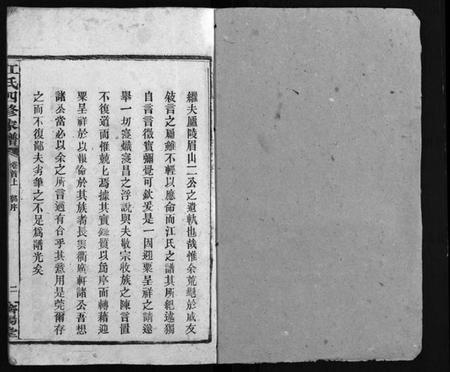 纘夫廬陵眉山二公之遺軌也哉惟余荒軀於成友
敍言之屬雖不輕以應命而江氏之譜其所紀述獨
自言言徵實彌覺可欽爰是一因迎聚呈祥之請遂
舉一切寖熾寖昌之浮說與夫敬宗收族之陳言置
不復道而惟兢上馮據其實錄質以爲序而轉藉迎
聚呈祥於以報命於其族者長雲衢廣軒諸公吾想
諸公當必以余之所言適有合乎其意用是莞爾存
之而不復鄙夫夯筆之不足爲譜光矣
江氏四修宗譜 卷首上 郭序 二 濟陽堂